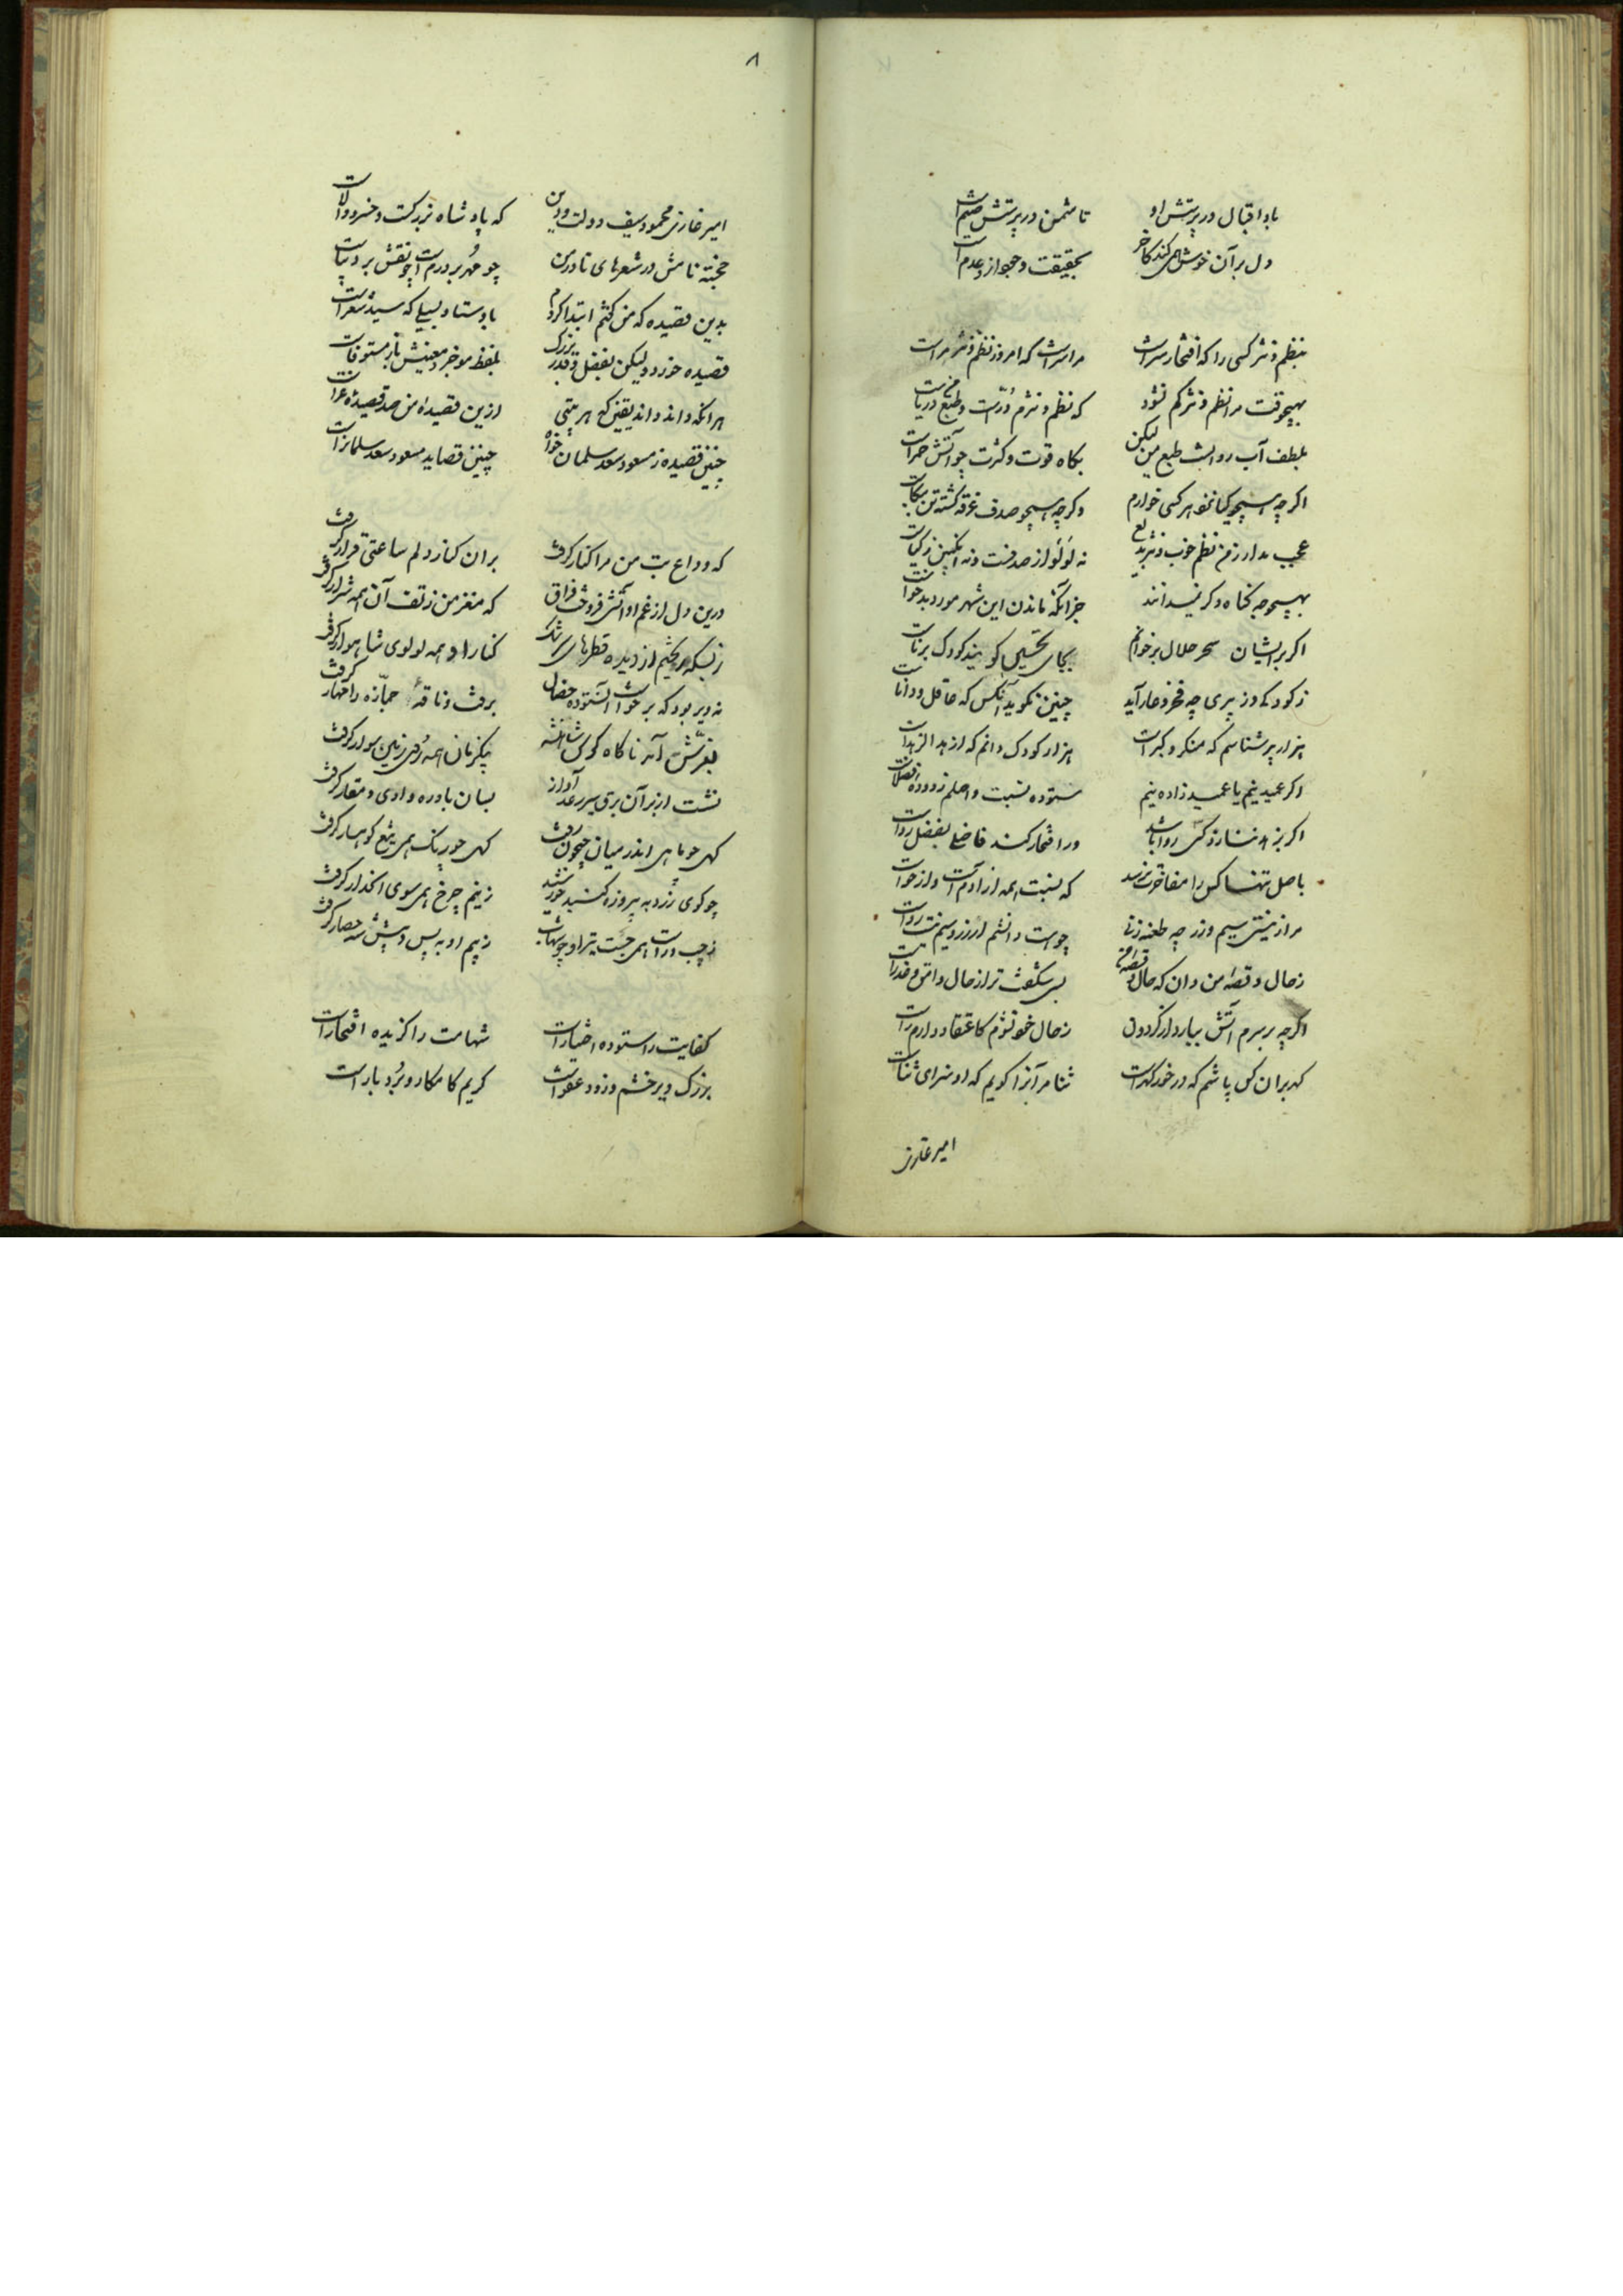 باد اقبال در پرستش او تا شمن در پرستش صنم است
دل بر آن خوش همی کند کاخر بحقیقت وجود از عدم است
بنظم و نثر کسی را که افتخار سزاست مرا سزاست که امروز نظم و نثر مراست
بهیچوقت مرا نظم و نثر کم نشود که نظم و نثرم درّست و طبع من دریاست
بلطف آب روانست طبع من لیکن بگاه قوت و کثرت چو آتش است
اگر چه همچو گیا نزد هر کسی خوارم وگر چه همچو صدف غرقه گشته تن بیکاست
عجب مدار ز من نظم خوب و نثر بدیع نه لؤلؤ از صدفست و نه انگبین ز گیاست
بهیچوجه گناه دگر نمیدانند جز آنکه ماندن این شهر مورد بدخواست
اگر بر ایشان سحر حلال برخوانم بجای تحسین گویند کودک برناست
ز کودکی و ز پیری چه فخر و عار آید چنین نگوید آنکس که عاقل و داناست
هزار پیر شناسم که منکر و گبر است هزار کودک دانم که ازهد الزهداست
اگر عمید نیم یا عمید زاده نیم ستوده نسبت و اصلم ز دوده فضلاست
اگر بزهد بنازد کسی روا باشد ور افتخار کند فاضلی بفضل رواست
باصل تنها کس را مفاخرت نرسد که نسبت همه از آدم است و از حواست
مرا ز نیستی سیم و زر چه طعنه زنی چو هست دانشم ار زر و سیم نیست رواست
ز حال و قصه من دان که حال و قصه من بسی شگفت تر از حال وامق و عذراست
اگر چه بر سرم آتش ببارد از گردون ز حال خود نشوم کاعتقاد دارم راست
گهر بر آن کس پاشم که در خور گهر است ثنا مر آنرا گویم که او سزای ثناست
امیر غازی
۸
امیر غازی محمود سیف دولت و دین که پادشاه بزرگست و خسرو والاست
خجسته نامش در شعرهای نادر من چو مهر بر درم است و چو نقش بر دیباست
بدین قصیده که من گفتم ابتدا کردم باوستاد لبیبی که سید الشعراست
قصیده خرد ولیکن بفضل و قدر بزرگ بلفظ موجز و معنیش باز مستوفاست
هر آنکه داند داند یقین که هر بیتی ازین قصیده من صد قصیده غراست
چنین قصیده ز مسعود سعد سلمان خواه چنین قصاید مسعود سعد سلمان راست
که وداع بت من مرا کنار گرفت بران کنار دلم ساعتی قرار گرفت
درین دل از غم او آتشی فروخت فراق که مغز من ز تف آن همه شرار گرفت
ز بسکه ریختم از دیده قطرهای سرشک کنار او همه لولوی شاهوار گرفت
نه دیر بود که برخواست آن ستوده خصال برفت و ناقه جمازه را مهار گرفت
نشست از بر آن برق سیر رعد آواز بسان باد ره وادی و قفار گرفت
گهی چو ماهی اندر میان جیحون رفت گهی چو رنگ همی تیغ کوهسار گرفت
چو گوی زرد به پیروزه گنبد خورشید ز نیم چرخ همی سوی انحدار گرفت
ز چپ و راست همی جست تیر او چو شهاب ز بیم او به پس و پیش شه حصار گرفت
کفایت را ستوده اختیار است شهامت را گزیده افتخار است
بزرگ دیر خشم و زود عفو است کریم کامکار و بردبار است